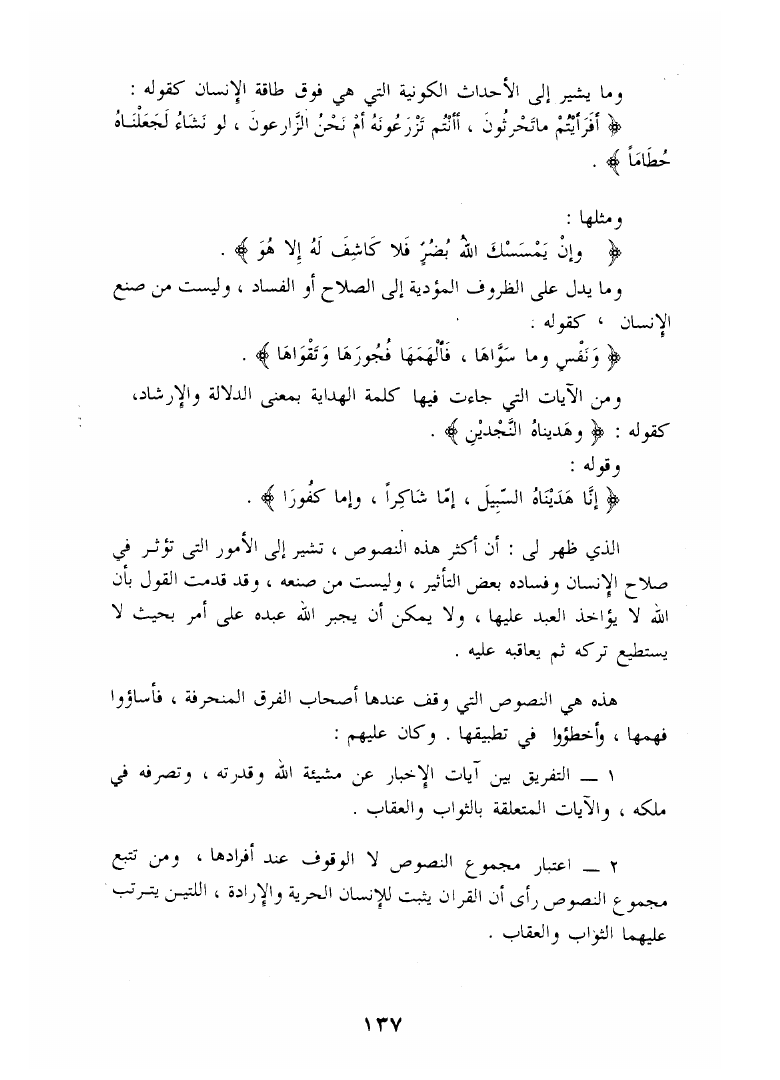 وما يشير إلى الأحداث الكونية التي هي فوق طاقة الإنسان كقوله :
﴿ أَفَرَأَيْتُمْ ماتَحْرثُونَ ، أأنْتُم تَزْرَعُونَهُ أمْ نَحْنُ الزَّارعونَ ، لو نَشَاءُ لَجَعَلْنَاهُ
حُطَامَاً ﴾ .
ومثلها :
﴿ وإنْ يَمْسَسْكَ اللهُ بُضُرٍّ فَلا كَاشِفَ لَهُ إلا هُوَ ﴾ .
وما يدل على الظروف المؤدية إلى الصلاح أو الفساد ، وليست من صنع
الإنسان ، كقوله :
﴿ وَنَفْسٍ وما سَوَّاهَا ، فَألْهَمَهَا فُجُورَهَا وَتَقْوَاهَا ﴾ .
ومن الآيات التي جاءت فيها كلمة الهداية بمعنى الدلالة والإرشاد،
كقوله : ﴿ وهَديناهُ النَّجْدَيْنِ ﴾ .
وقوله :
﴿ إنَّا هَدَيْنَاهُ السّبِيلَ ، إمّا شَاكِراً ، وإما كفُورَا ﴾ .
الذي ظهر لى : أن أكثر هذه النصوص ، تشير إلى الأمور التى تؤثر في
صلاح الإنسان وفساده بعض التأثير ، وليست من صنعه ، وقد قدمت القول بأن
الله لا يؤاخذ العبد عليها ، ولا يمكن أن يجبر الله عبده على أمر بحيث لا
يستطيع تركه ثم يعاقبه عليه .
هذه هي النصوص التي وقف عندها أصحاب الفرق المنحرفة ، فأساؤوا
فهمها ، وأخطؤوا في تطبيقها . وكان عليهم :
١ ــ التفريق بين آيات الإخبار عن مشيئة الله وقدرته ، وتصرفه في
ملكه ، والآيات المتعلقة بالثواب والعقاب .
٢ ــ اعتبار مجموع النصوص لا الوقوف عند أفرادها ، ومن تتبع
مجموع النصوص رأى أن القران يثبت للإنسان الحرية والإرادة ، اللتين يترتب
عليهما الثواب والعقاب .
١٣٧